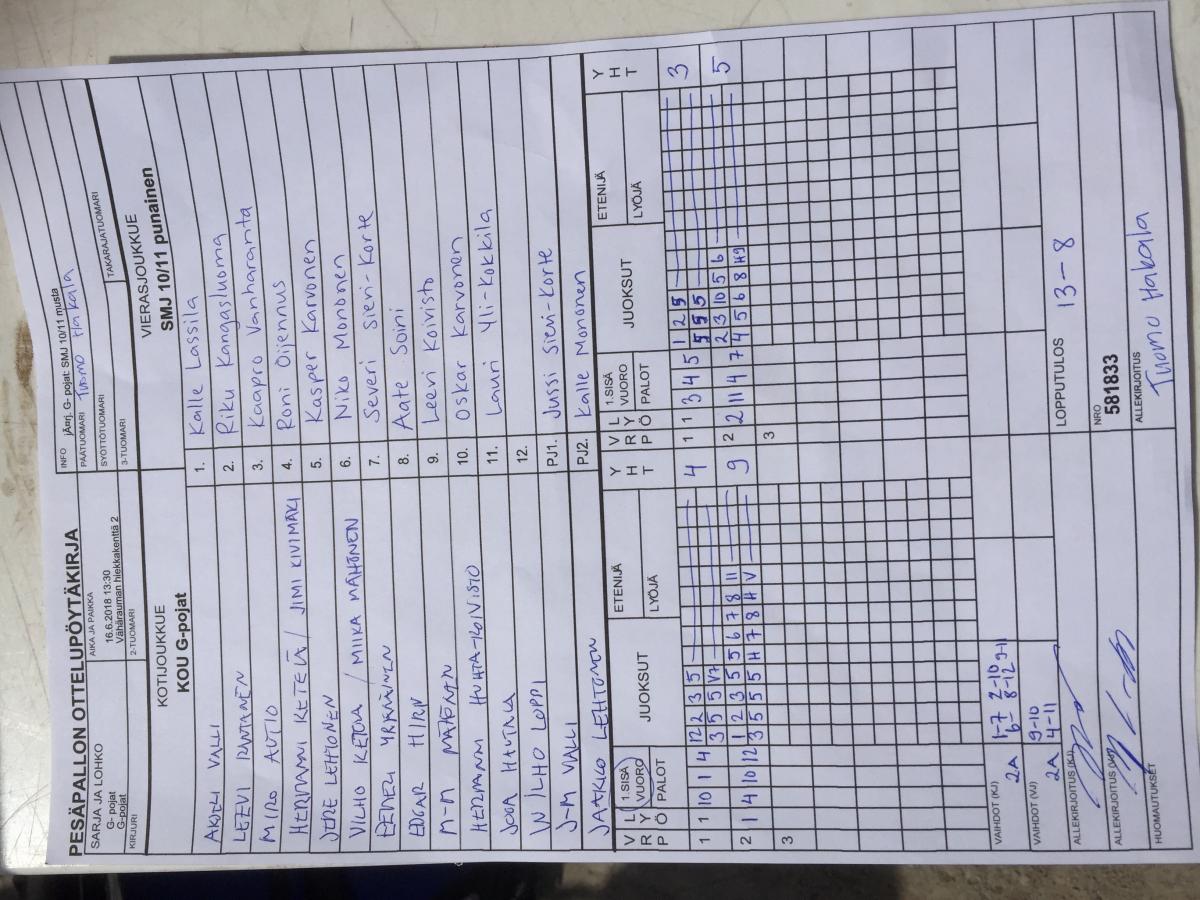 PESÄPALLON OTTELUPÖYTÄKIRJA
SARJA JA LOHKO
G- pojat
G-pojat
AIKA JA PAIKKA
16.6.2018 13:30
Vähärauman hiekkakenttä 2
INFO jÄrj. G- pojat: SMJ 10/11 musta
PÄÄTUOMARI Tuomo Hakala
SYÖTTÖTUOMARI
TAKARAJATUOMARI
KIRJURI
2-TUOMARI
3-TUOMARI
KOTIJOUKKUE
KOU G-pojat
VIERASJOUKKUE
SMJ 10/11 punainen
VALLI 1. Kalle Lassila
LEEVI RANTANEN 2. Riku Kangasluoma
MIRO AUTIO 3. Kaapro Vanharanta
HERMANNI KETELÄ / JIMI KIVIMÄKI 4. Roni Oijennus
JERE LEHTONEN 5. Kasper Karvonen
VILHO KETOLA / MIIKA MÄHÖNEN 6. Niko Mononen
7. Severi Sieri-Korte
EDGAR HIRN 8. Aate Soini
M-M 9. Leeri Koivisto
HERMANNI HUHTA-KOIVISTO 10. Oskar Karvonen
JOOA HAUTALA 11. Lauri Yli-Kokkila
WILHO LOPPI 12.
J-M VALLI PJ1. Jussi Sieri-Korte
JAAKKO LEHTONEN PJ2. Kalle Mononen
V R P L Y Ö 1.SISÄ VUORO PALOT JUOKSUT ETENIJÄ LYÖJÄ Y H T
V R P L Y Ö 1.SISÄ VUORO PALOT JUOKSUT ETENIJÄ LYÖJÄ Y H T
1 1 10 1 4 12 2 3 5 4 1 1 3 4 5 1 2 5 3
3 5 5 V7 5 5 5
2 1 4 10 12 1 2 3 5 5 6 7 8 11 9 2 2 11 4 7 2 3 10 5 6 5
3 5 5 5 H 7 8 H V 4 5 6 8 H9
3 3
VAIHDOT (KJ) 2A 1-7 2-10
6- 8-12 9-11
VAIHDOT (VJ) 2A 9-10
4-11
LOPPUTULOS 13-8
ALLEKIRJOITUS (KJ)
NRO
581833
ALLEKIRJOITUS (VJ)
ALLEKIRJOITUS
Tuomo Hakala
HUOMAUTUKSET